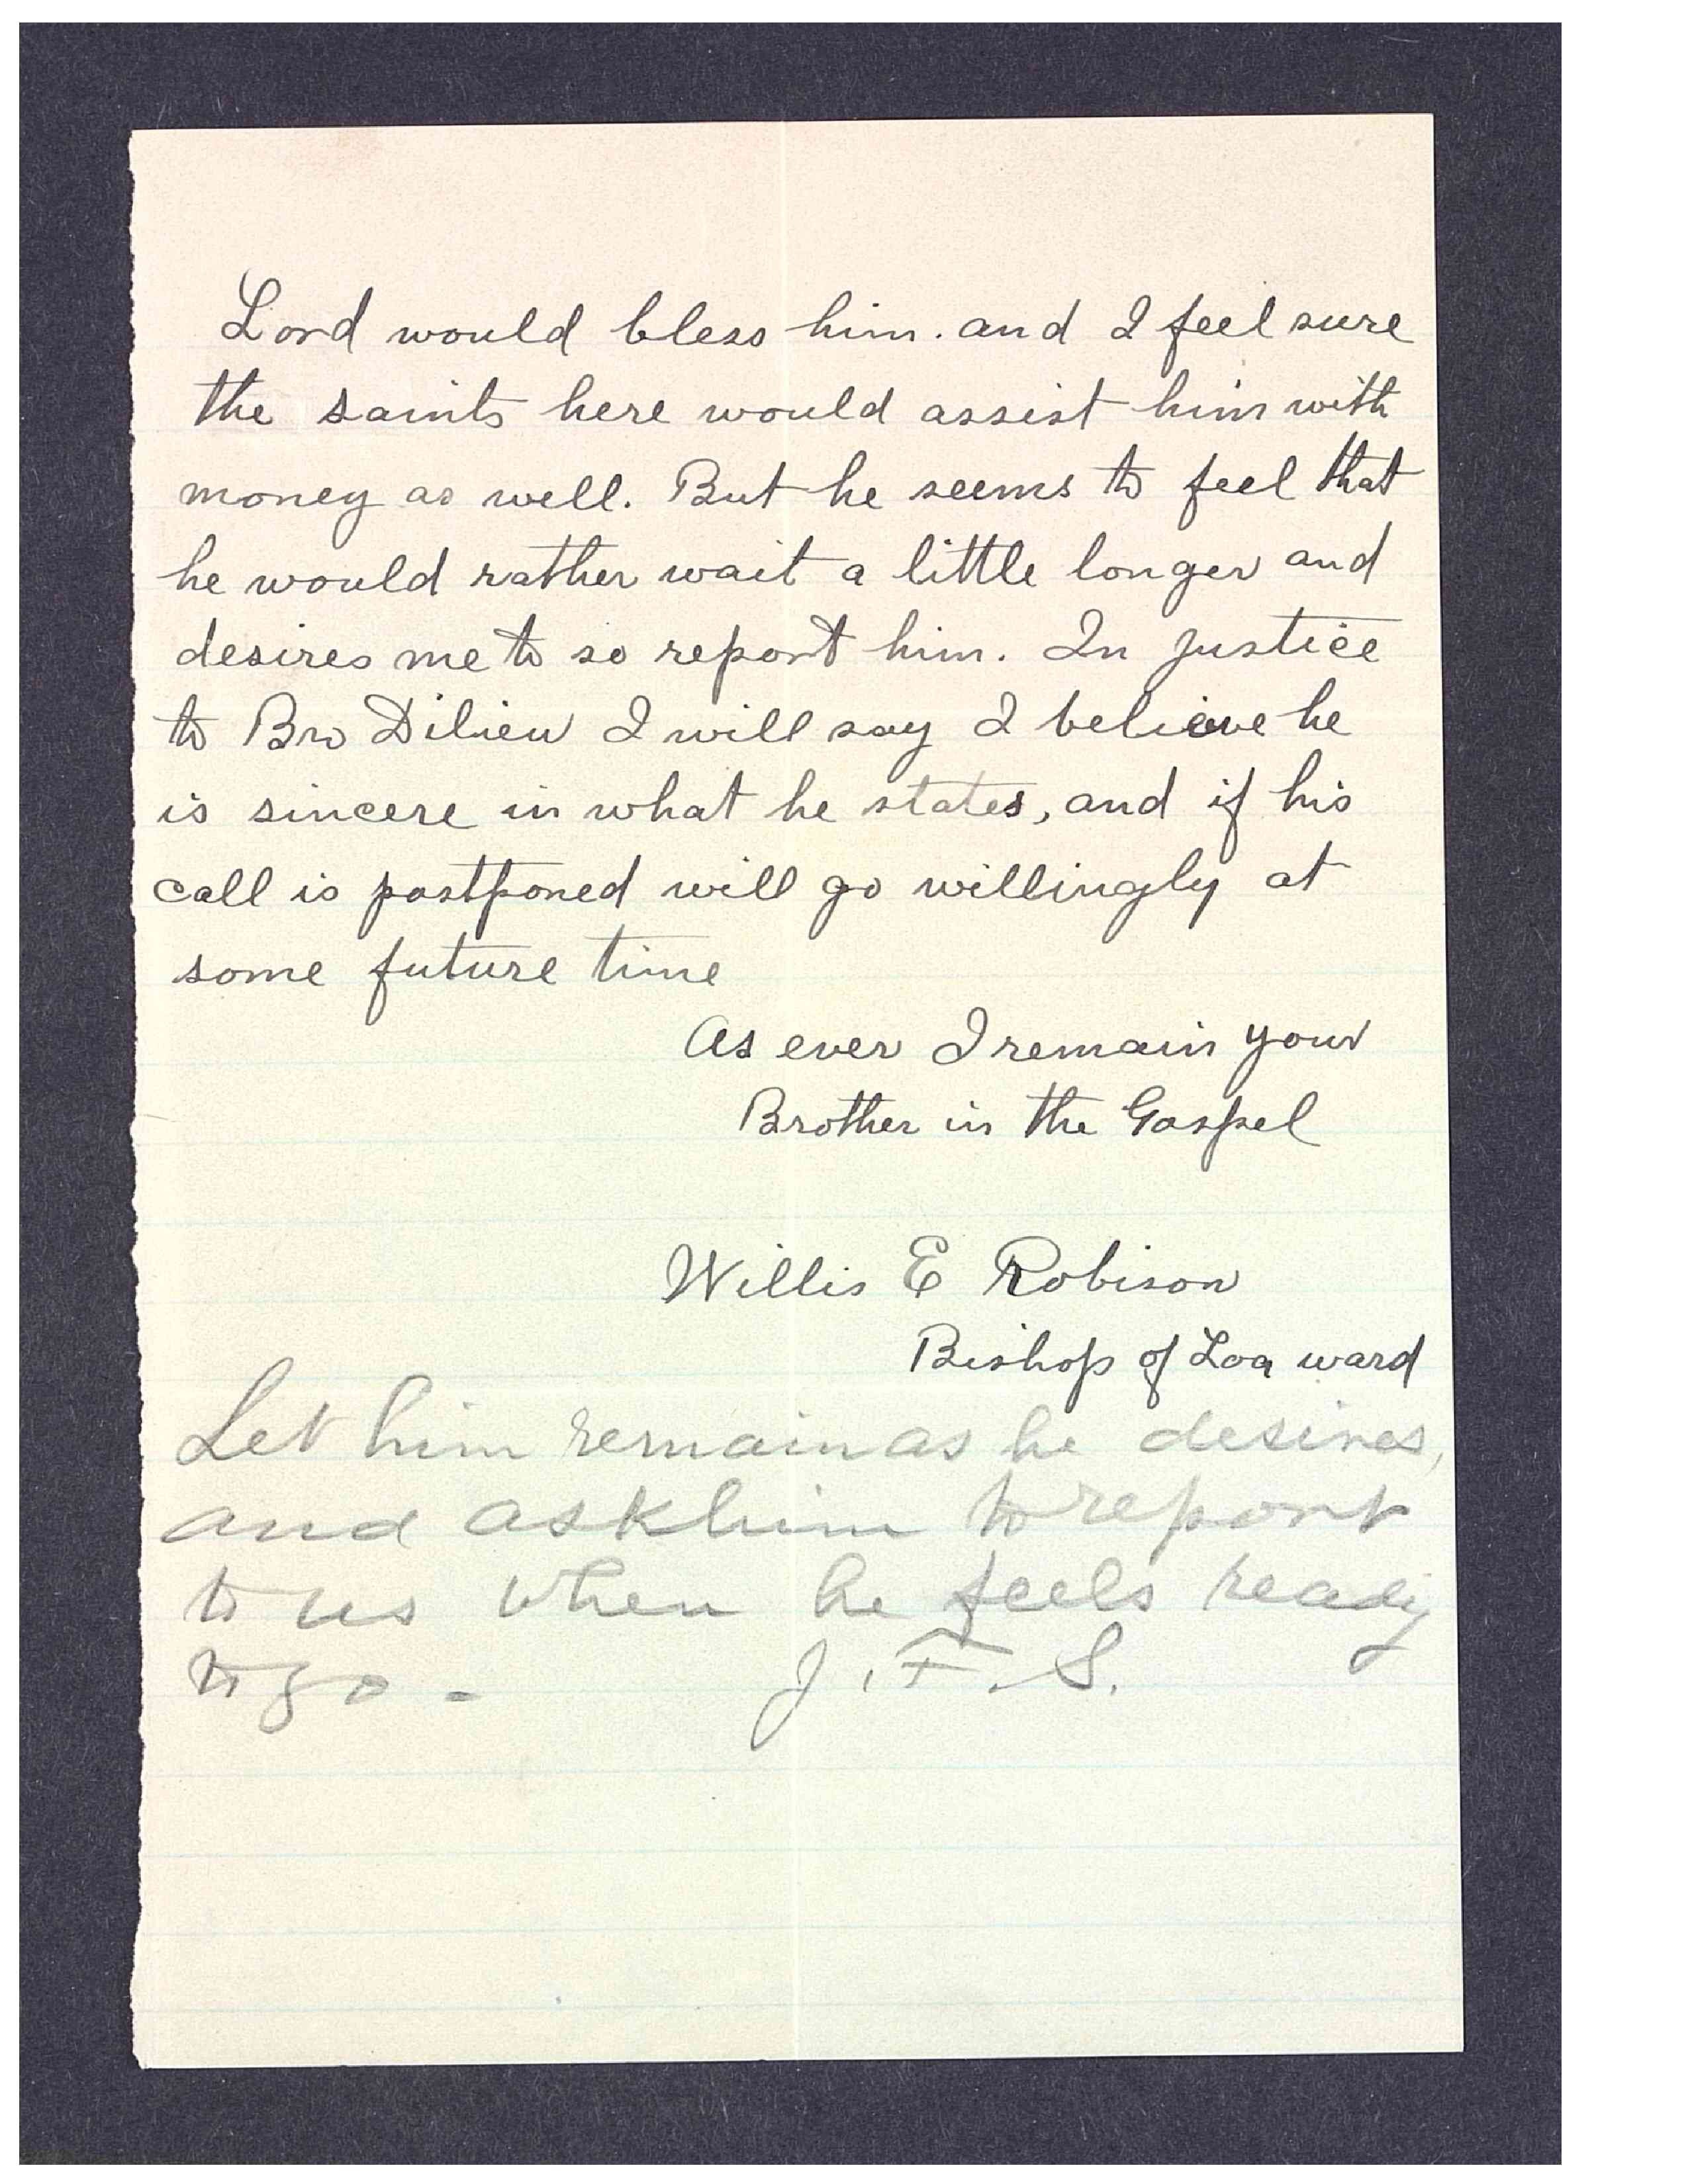 Lord would bless him. and I feel sure
the saints here would assist him with
money as well. But he seems to feel that
he would rather wait a little longer and
desires me to so report him. In justice
to Bro Dilieu I will say I believe he
is sincere in what he states, and if his
call is postponed will go willingly at
some future time
As ever I remain your
Brother in the Gospel
Willis E Robison
Bishop of Loa ward
Let him remain as he desires,
and ask him to report
to us when he feels ready
to go -     J. F. S.